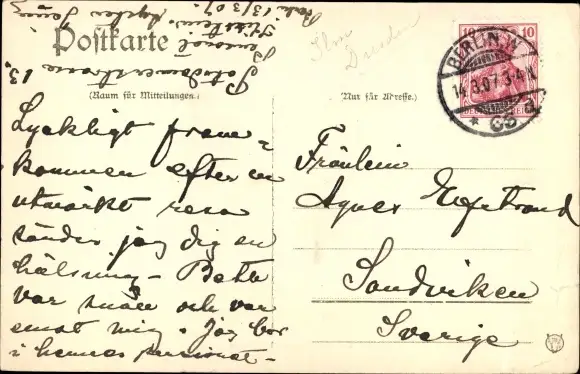 Postkarte
(Raum für Mitteilungen.)
(Nur für Adresse.)
Berlin 13/3 07.
Potsdamerstrasse 13.
Lyckligt fram-
kommen efter en
utmärkt resa
sänder jag dig en
hälsning - Beth
var snäll och var
emot mig. Jag bor
i hennes pensionat -
Ilm
Dresden
10 10
BERLIN. W
14.3.07. 3-4 N
* 9
Fräulein
Agnes
Sandviken
Sverige